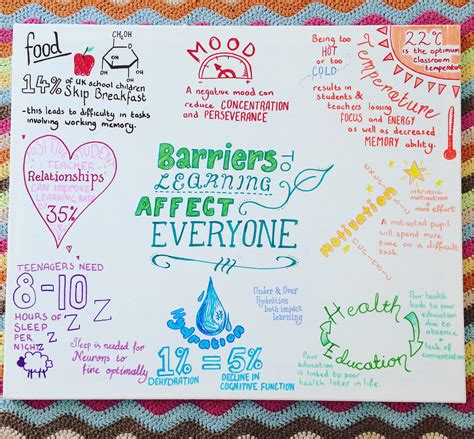 food
CH₂OH
OH
14% OF UK SCHOOL CHILDREN
SKIP BREAKFAST
-this leads to difficulty in tasks
involving working memory.
MOOD
A negative mood can
reduce CONCENTRATION
and PERSEVERANCE
Being too
HOT
or too
COLD
results in
students &
teachers loosing
FOCUS and ENERGY
as well as decreased
MEMORY ability.
Temperature
22°C
is the optimum
classroom
temperature
POSITIVE STUDENT
TEACHER
Relationships
CAN IMPROVE
LEARNING RATE
35%
Barriers TO
LEARNING
AFFECT
EVERYONE
Motivation
increases
motivation =
more effort
A motivated pupil
will spend more
time on a difficult
task.
TEENAGERS NEED
8-10
HOURS OF
SLEEP
PER
NIGHT
ZZZ
Sleep is needed for
Neurons to
fire optimally
Hydration
Under & Over
Hydration
both impact
learning
1% = 5%
DEHYDRATION
DECLINE IN
COGNITIVE FUNCTION
Health
Education
Poor health
leads to poor
education
due to
absence
+
lack of
concentration
Poor
education
is linked to poor
health later in life.